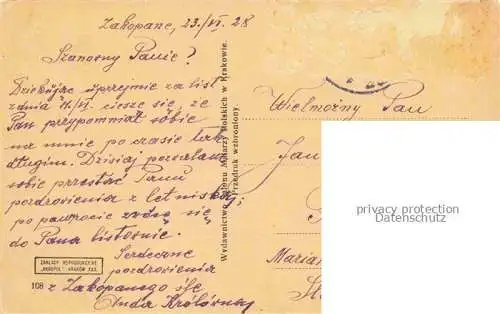 Zakopane, 23./VI. 28
Szanowny Panie!
Dziękuję uprzejmie za list
z dnia /VI. cieszę się, że
Pan przypomniał sobie
na mnie po czasie tak
długim. Dzisiaj pozwalam
sobie przesłać Panu
pozdrowienia z letniska;
po powrocie zwrócę się
do Pana listownie.
Serdeczne
pozdrowienia
z Zakopanego śle
Królówna
ZAKŁADY REPRODUKCYJNE
"AKROPOL" KRAKÓW
108
Wydawnictwo Salonu Malarzy Polskich w Krakowie.
Przedruk wzbroniony.
Wielmożny Pan
Jan
Marian
privacy protection
Datenschutz